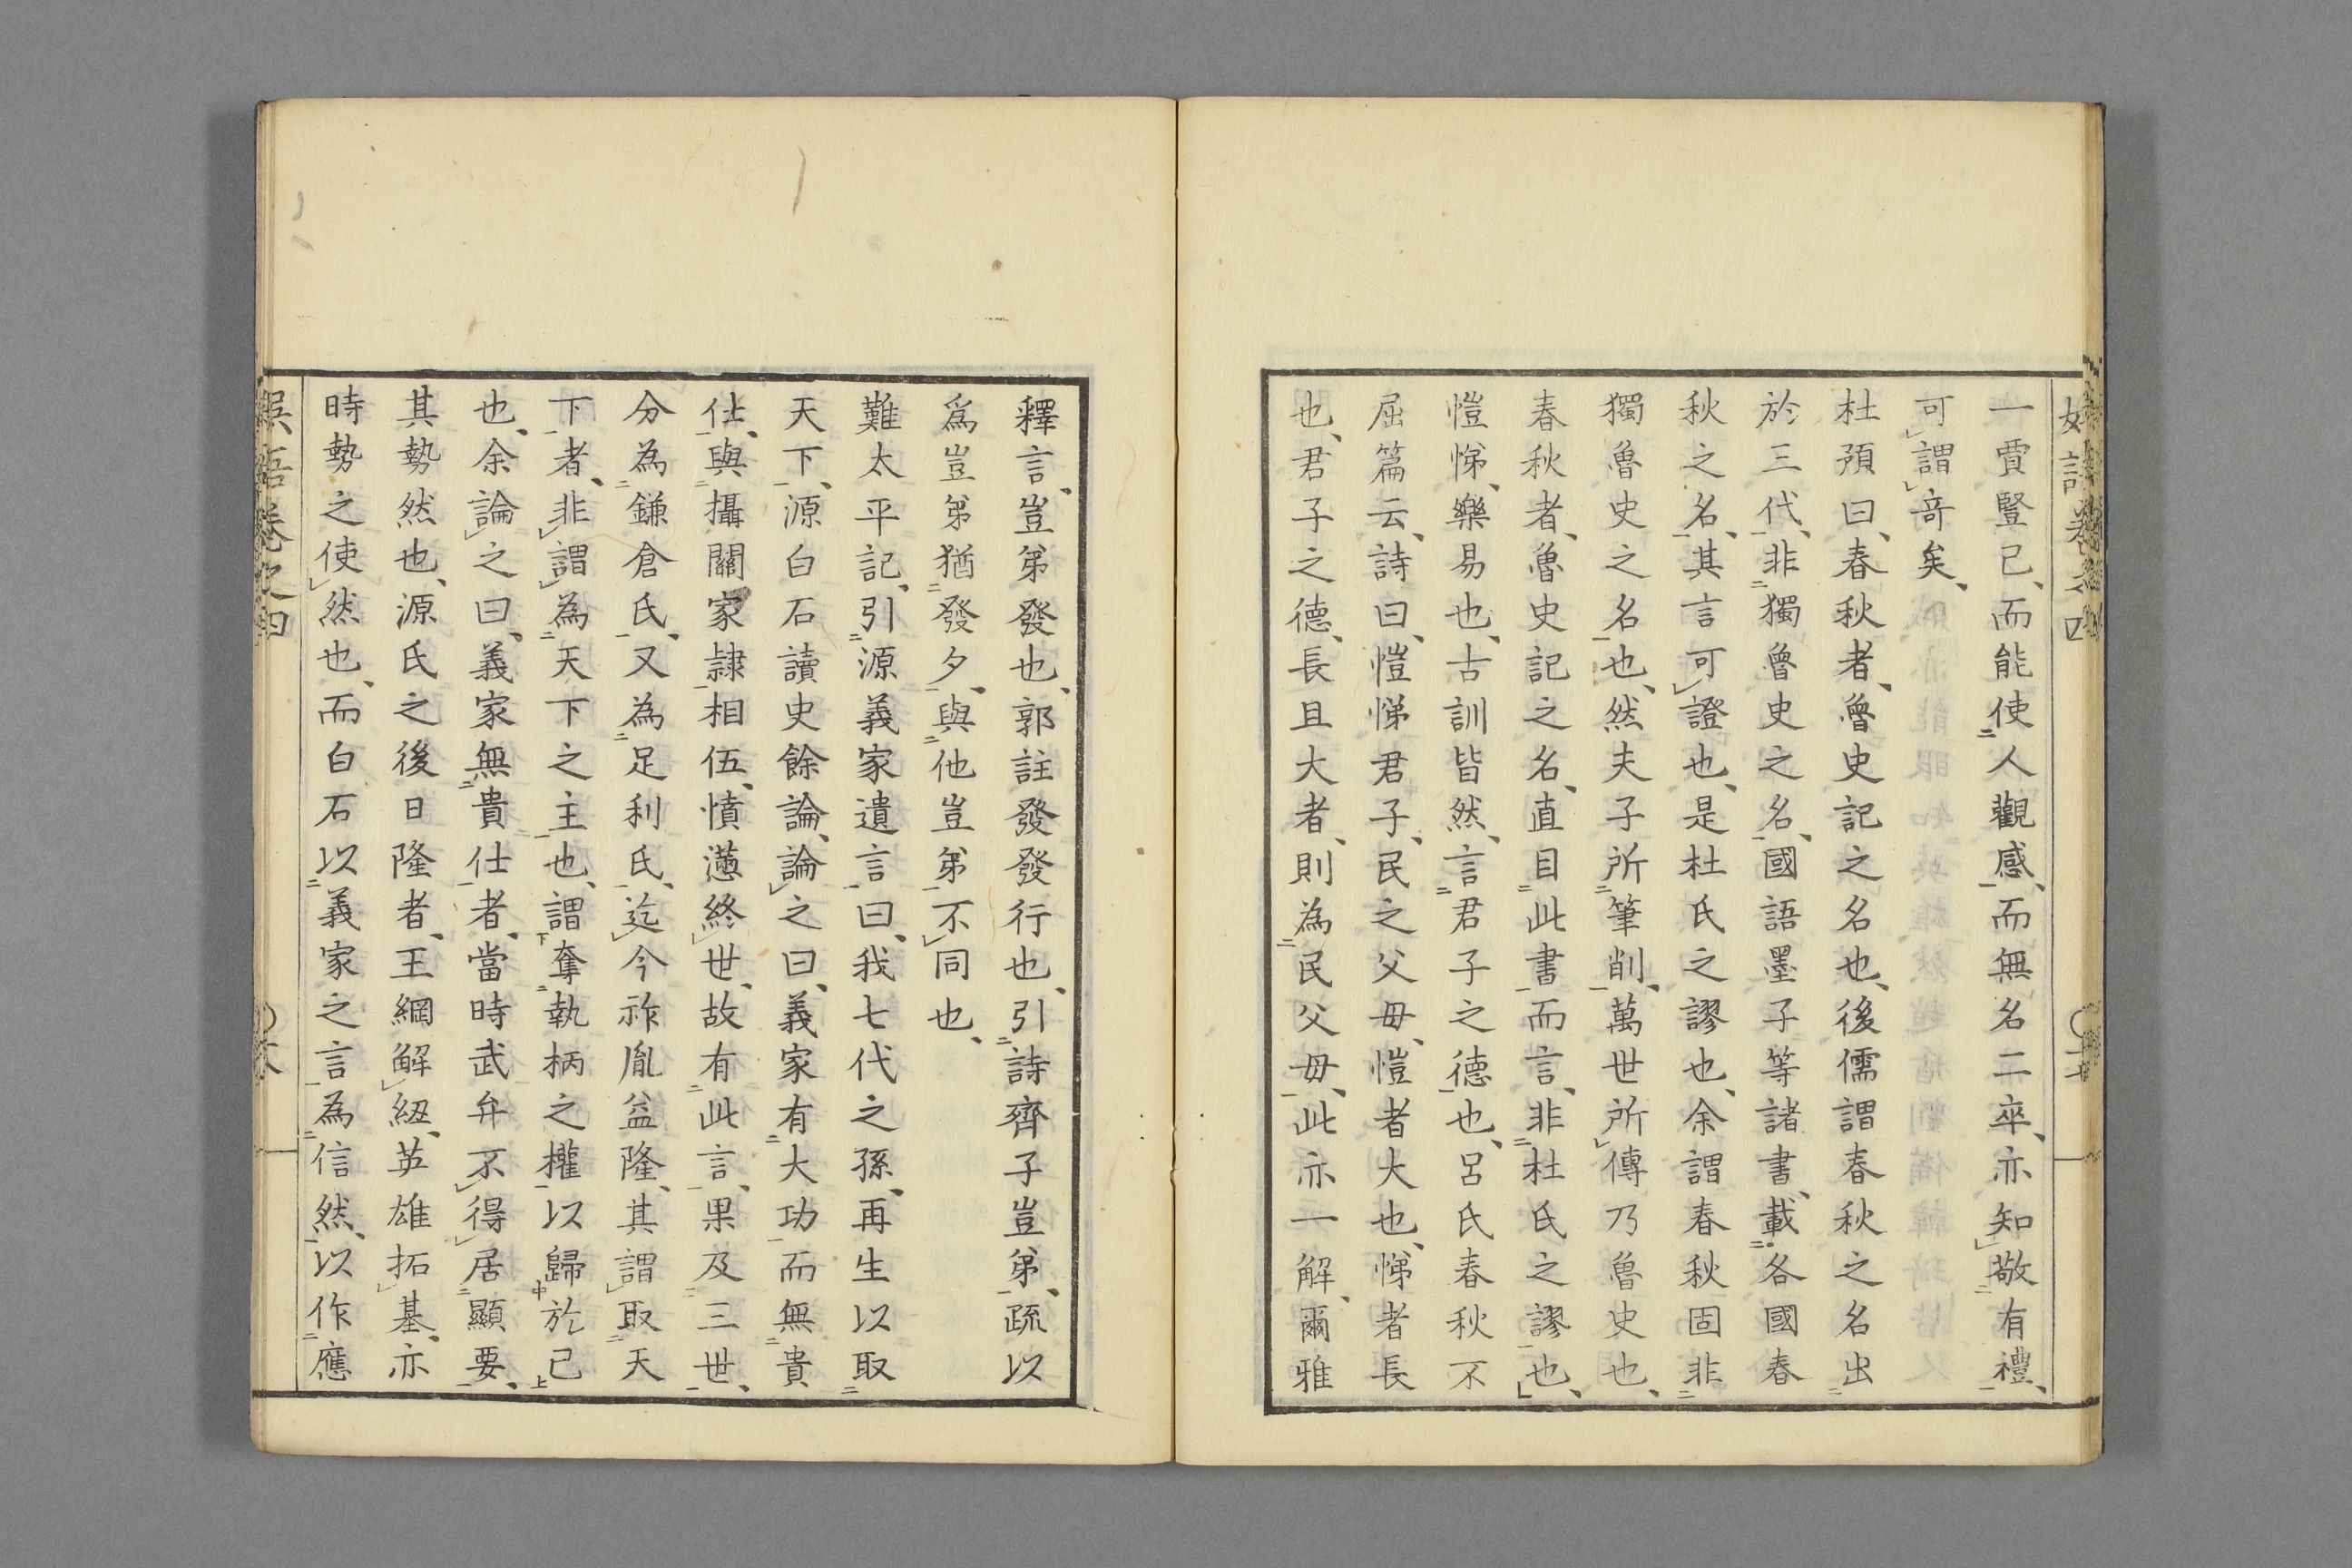 一賈豎已、而能使人觀感、而無名二卒、亦知敬有禮、
可謂竒矣、
杜預曰、春秋者、魯史記之名也、後儒謂春秋之名出
於三代、非獨魯史之名、國語墨子等諸書、載各國春
秋之名、其言可證也、是杜氏之謬也、余謂春秋固非
獨魯史之名也、然夫子所筆削、萬世所傳乃魯史也、
春秋者、魯史記之名、直目此書而言、非杜氏之謬也、
愷悌、樂易也、古訓皆然、言君子之德也、呂氏春秋不
屈篇云、詩曰、愷悌君子、民之父母、愷者大也、悌者長
也、君子之德、長且大者、則為民父母、此亦一解、爾雅
釋言、豈弟發也、郭註發發行也、引詩齊子豈弟、疏以
爲豈弟猶發夕、與他豈弟不同也、
難太平記、引源義家遺言曰、我七代之孫、再生以取
天下、源白石讀史餘論、論之曰、義家有大功而無貴
仕、與攝關家隷相伍、憤懣終世、故有此言、果及三世、
分為鎌倉氏、又為足利氏、迄今祚胤益隆、其謂取天
下者、非謂為天下之主也、謂奪執柄之權以歸於己
也、余論之曰、義家無貴仕者、當時武弁不得居顯要、
其勢然也、源氏之後日隆者、王綱解紐、英雄拓基、亦
時勢之使然也、而白石以義家之言為信然、以作應